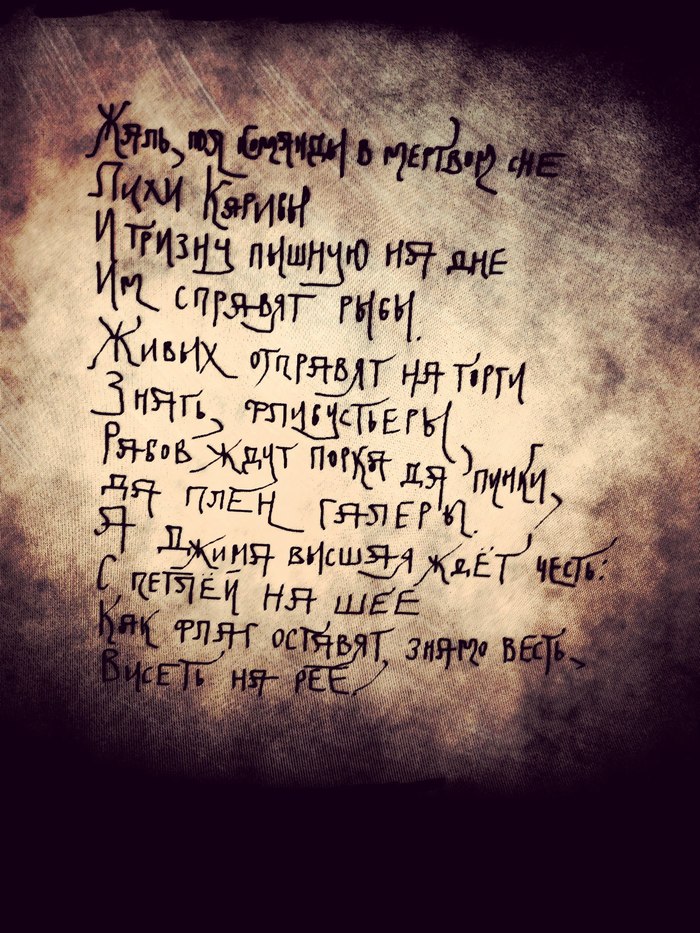 Жаль, пол команды в мертвом сне
Пихи Карибы
И тризну пышную на дне
Им справят рыбы.
Живых отправят на торги
Знать, флибустьеры,
Рабов ждут порка да пинки,
да плен галеры.
А Джима висшая ждёт честь:
С петлёй на шее
Как флаг оставят, знамо весть,
Висеть на рее.